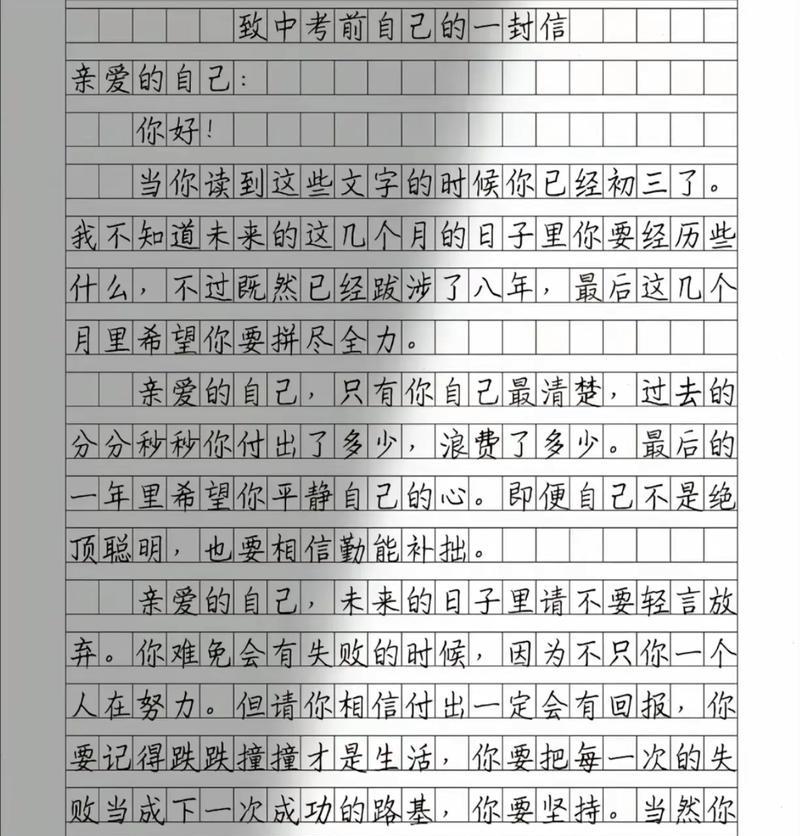 致中考前自己的一封信
亲爱的自己：
你好！
当你读到这些文字的时候你已经初三了。
我不知道未来的这几个月的日子里你要经历些
什么，不过既然已经跋涉了八年，最后这几个
月里希望你要拼尽全力。
亲爱的自己，只有你自己最清楚，过去的
分分秒秒你付出了多少，浪费了多少。最后的
一年里希望你平静自己的心。即便自己不是绝
顶聪明，也要相信勤能补拙。
亲爱的自己，未来的日子里请不要轻言放
弃。你难免会有失败的时候，因为不只你一个
人在努力。但请你相信付出一定会有回报，你
要记得跌跌撞撞才是生活，你要把每一次的失
败当成下一次成功的路基，你要坚持。当然你